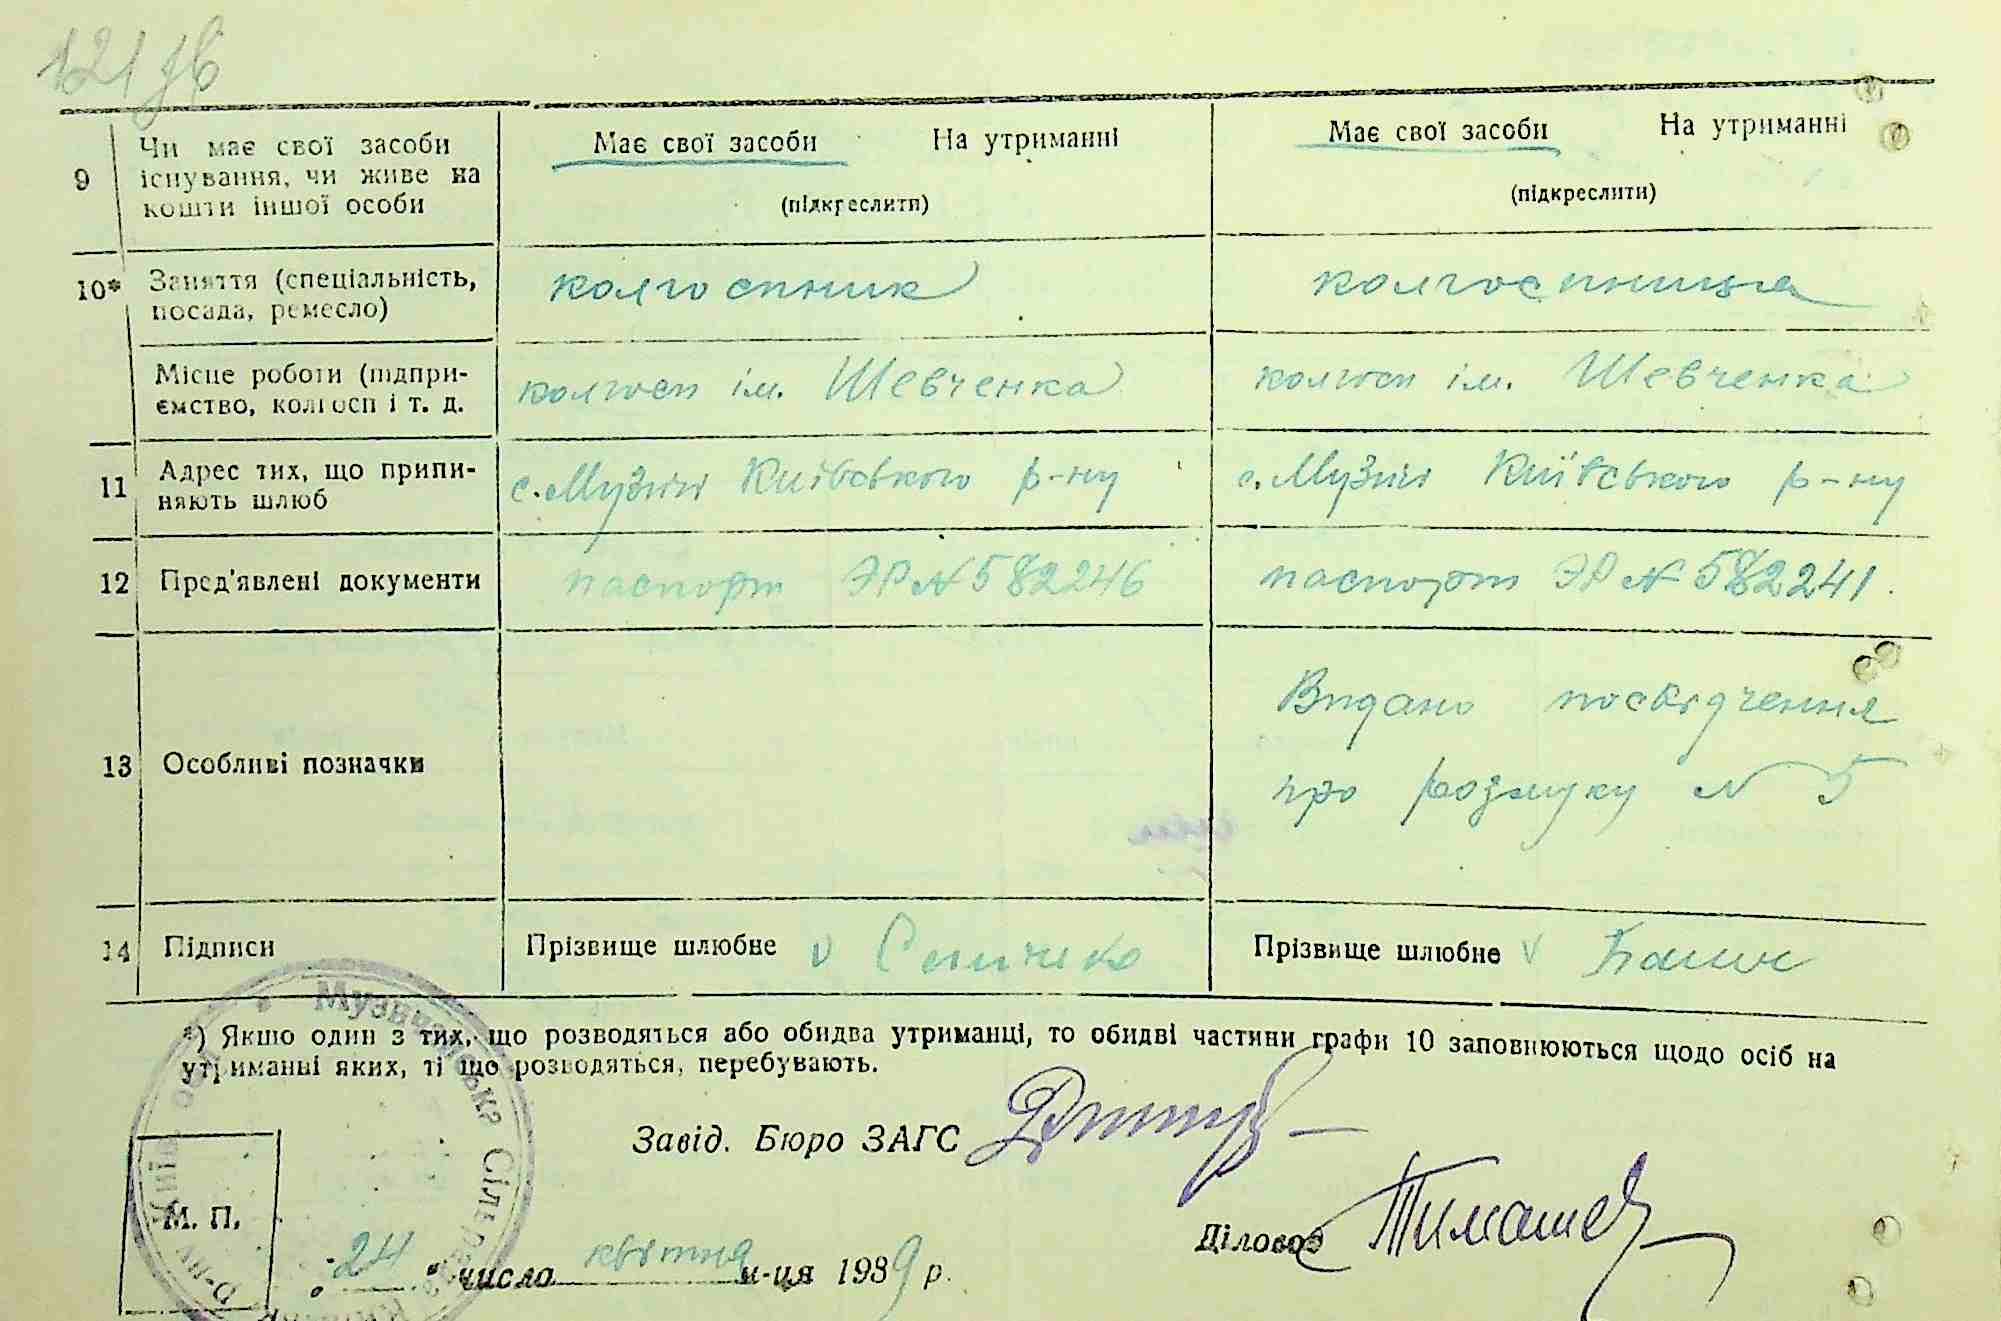 121
9
Чи має свої засоби
існування, чи живе на
кошти іншої особи
Має свої засоби На утриманні
(підкреслити)
Має свої засоби На утриманні
(підкреслити)
10*
Заняття (спеціальність,
посада, ремесло)
колгоспник
колгоспниця
Місце роботи (підпри-
ємство, колгосп і т. д.
колгосп ім. Шевченка
колгосп ім. Шевченка
11
Адрес тих, що припи-
няють шлюб
с. Музичі Київського р-ну
с. Музичі Київського р-ну
12
Пред'явлені документи
паспорт ЭР № 582246
паспорт ЭР № 582241.
13
Особливі позначки
Видано посвідчення
про розлуку № 5
14
Підписи
Прізвище шлюбне v
Прізвище шлюбне v
*) Якшо один з тих, що розводяться або обидва утриманці, то обидві частини графи 10 заповнюються щодо осіб на
утриманні яких, ті що розводяться, перебувають.
Завід. Бюро ЗАГС
Діловод
М. П.
"24" числа квітня м-ця 1939 р.
Музичанська Сільрада